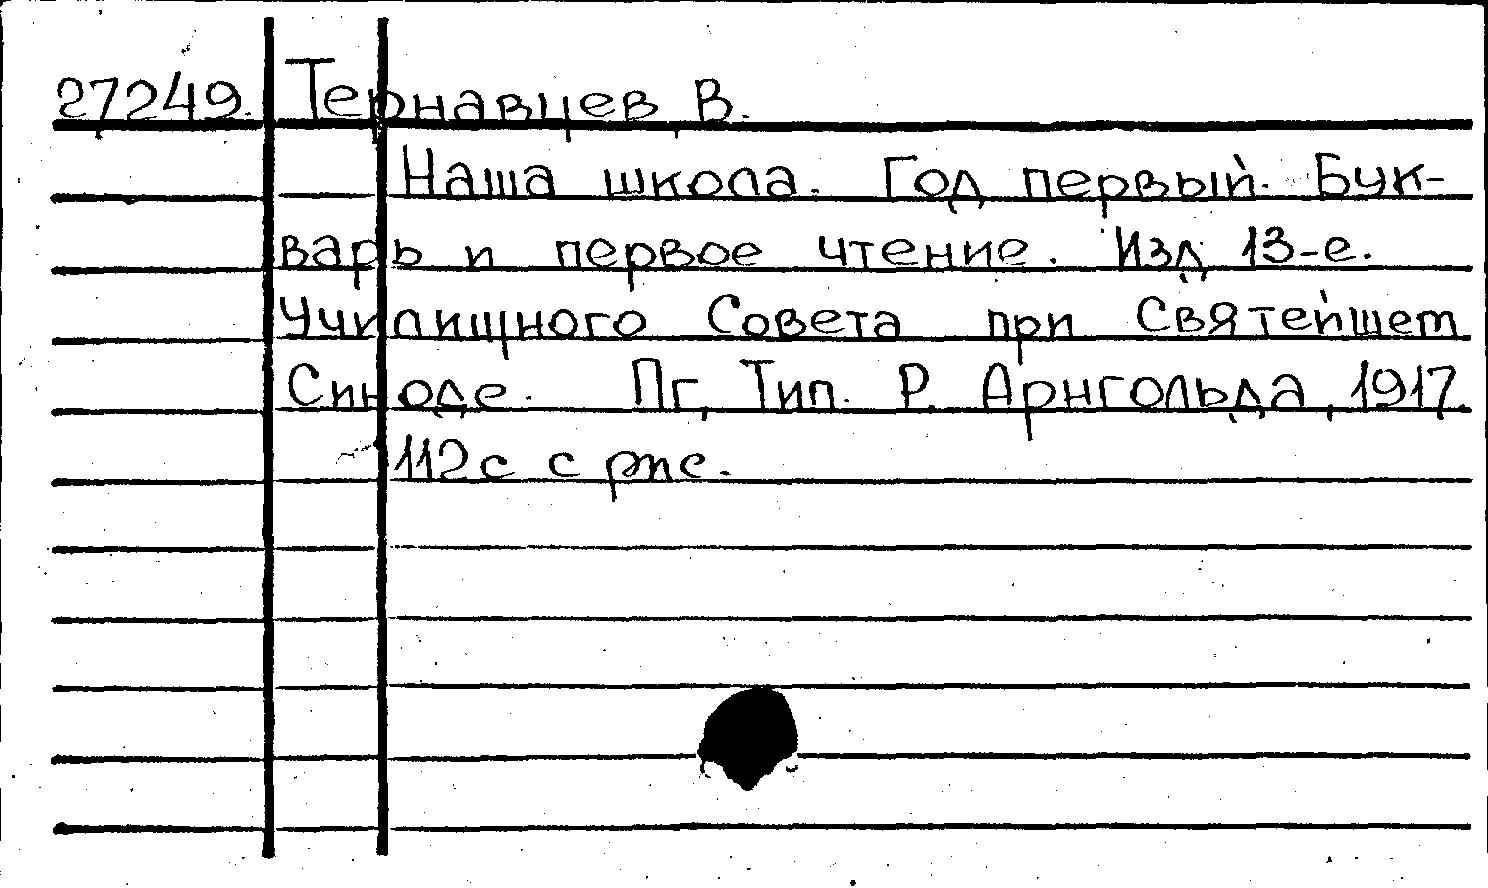 27249. Тернавцев, В.
Наша школа. Год первый. Бук-
варь и первое чтение. Изд. 13-е.
Училищного Совета при Святейшем
Синоде. Пг, Тип. Р. Арнгольда, 1917.
112 с с рис.